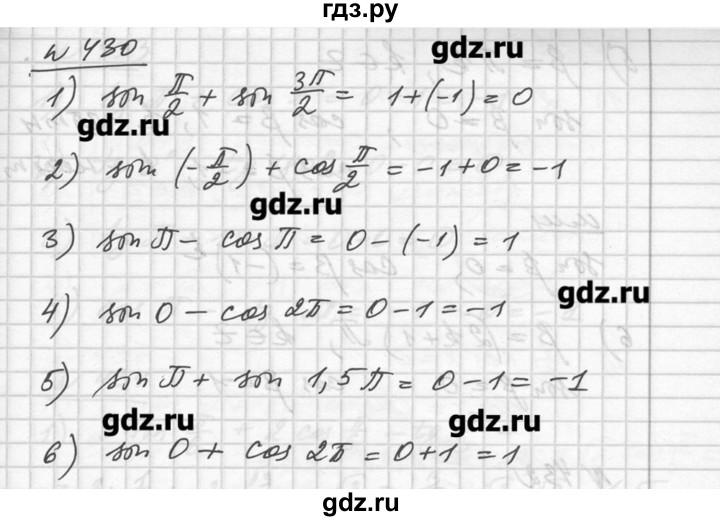 гдз.ру
№ 430
gdz.ru
1) sin π/2 + sin 3π/2 = 1+(-1) = 0
gdz.ru
2) sin (-π/2) + cos π/2 = -1+0 = -1
gdz.ru
3) sin π - cos π = 0-(-1) = 1
gdz.ru
4) sin 0 - cos 2π = 0-1 = -1
5) sin π + sin 1,5π = 0-1 = -1
gdz.ru gdz.ru
6) sin 0 + cos 2π = 0+1 = 1
gdz.ru